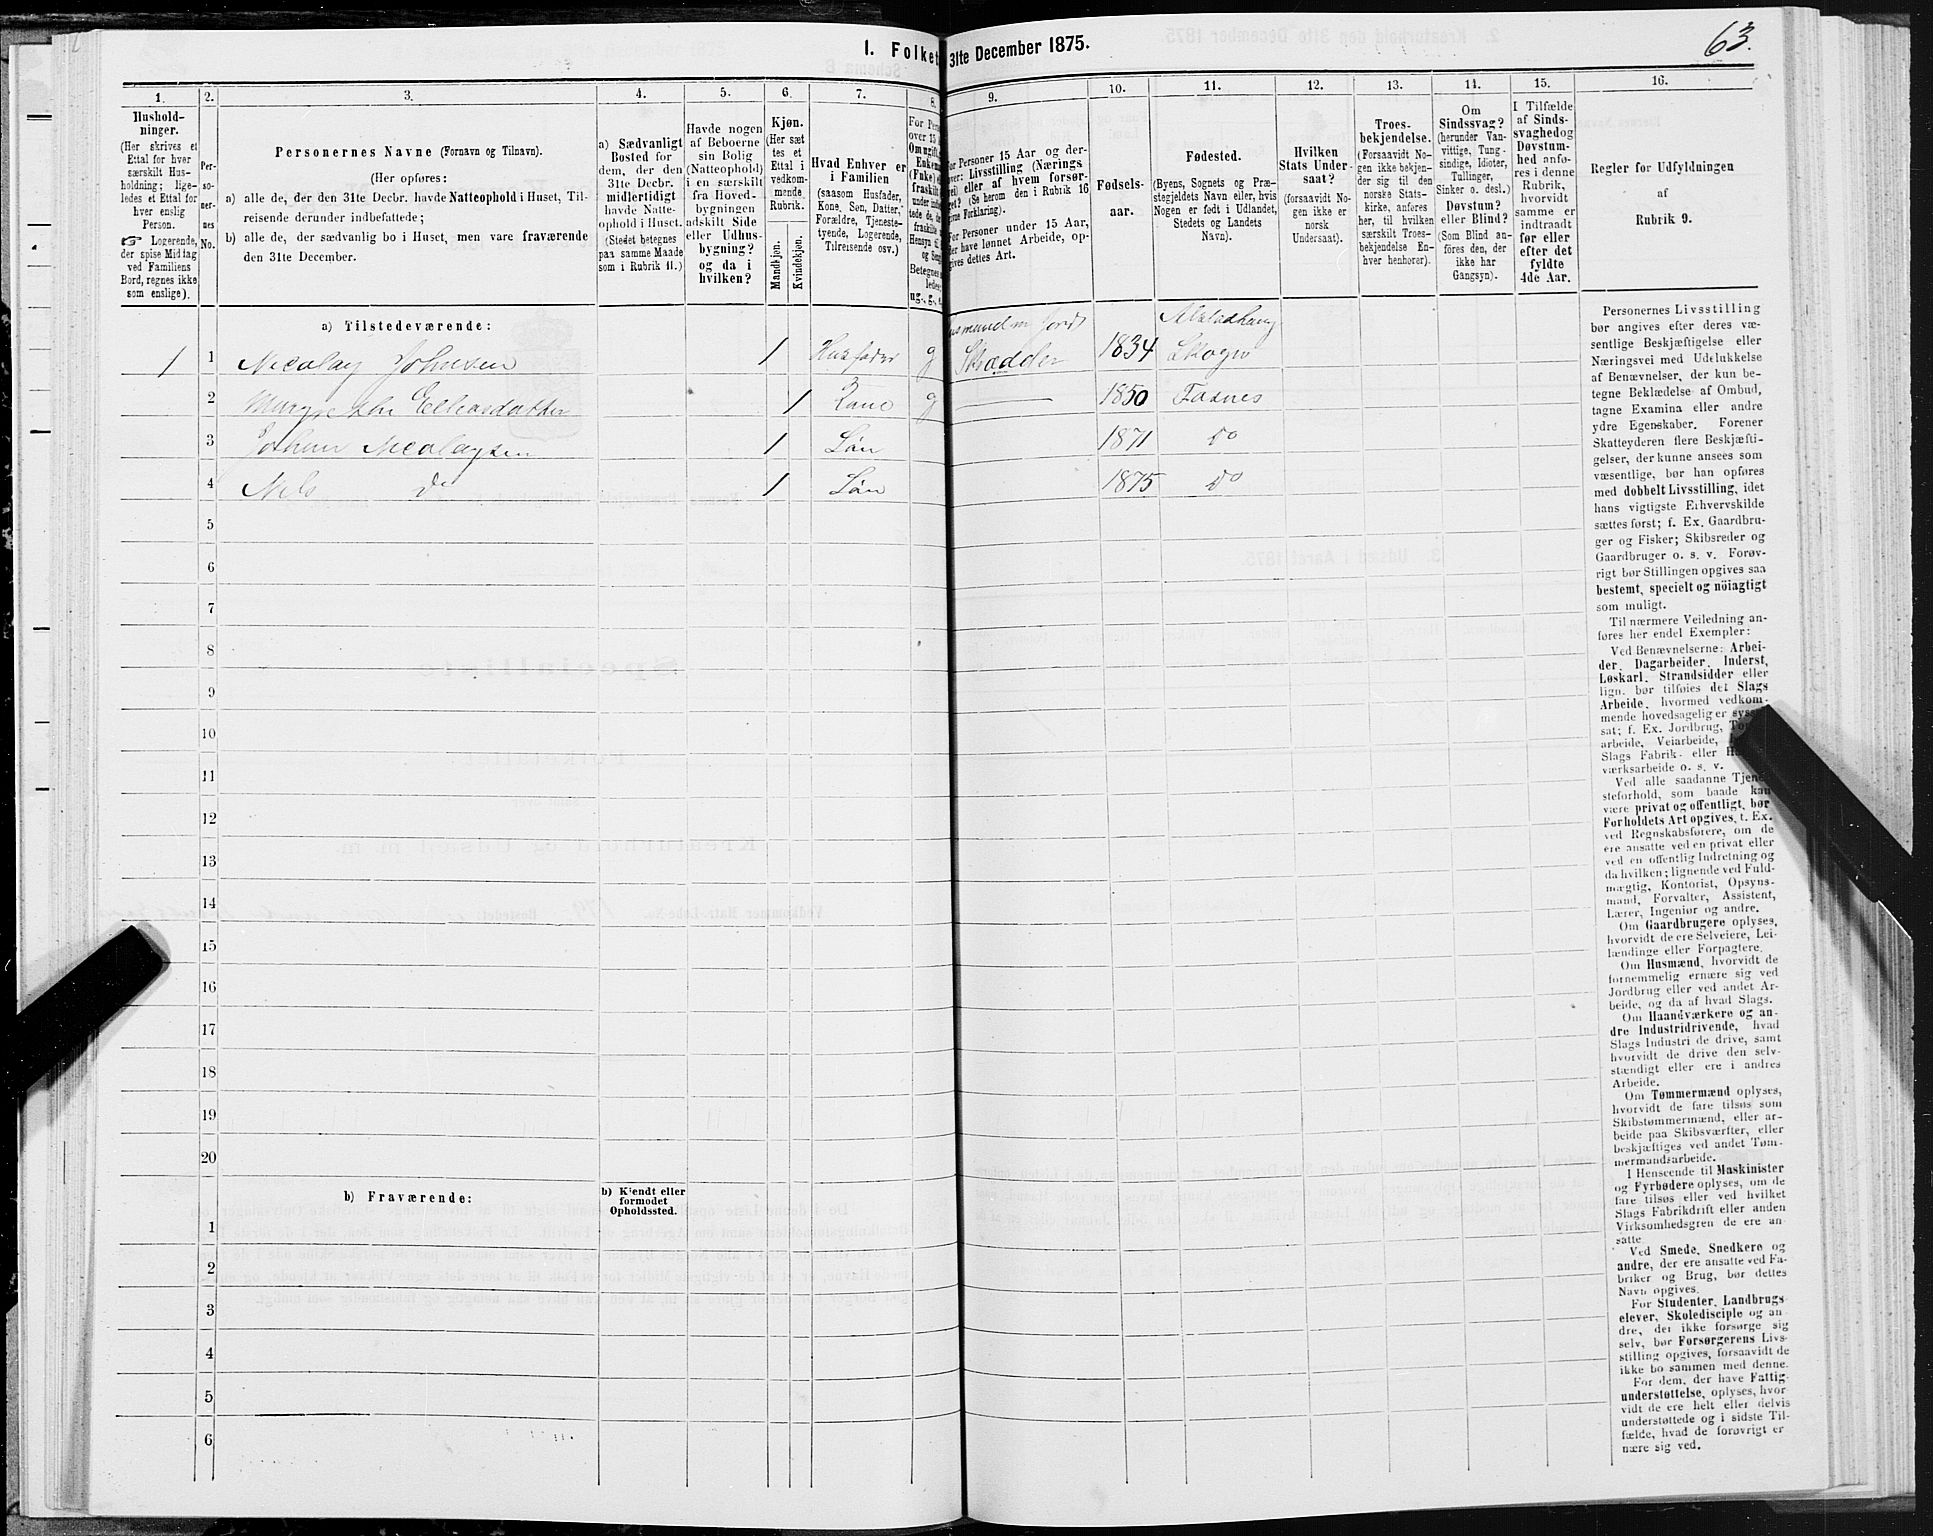 63.
I. Folket 31te December 1875.
1. 2. 3. 4. 5. 6. 7. 8. 9. 10. 11. 12. 13. 14. 15. 16.
Hushold-
ninger.
(Her skrives et
Ettal for hver
særskilt Hus-
holdning; lige-
ledes et Ettal for
hver enslig
Person.
☞ Logerende,
der spise Middag
ved Familiens
Bord, regnes ikke
som enslige).
Per-
so-
ner-
nes
No.
Personernes Navne (Fornavn og Tilnavn).
(Her opføres:
a) alle de, der den 31te Decbr. havde Natteophold i Huset, Til-
reisende derunder indbefattede;
b) alle de, der sædvanlig bo i Huset, men vare fraværende
den 31te December.
a) Sædvanligt
Bosted for
dem, der den
31te Decbr.
midlertidigt
havde Natte-
ophold i Huset.
(Stedet betegnes
paa samme Maade
som i Rubrik 11.)
Havde nogen
af Beboerne
sin Bolig
(Natteophold)
i en særskilt
fra Hoved-
bygningen
adskilt Side
eller Udhus-
bygning?
og da i
hvilken?
Kjøn.
(Her sæt-
tes et
Ettal i
vedkom-
mende
Rubrik.
Mandkjøn.
Kvindekjøn.
Hvad Enhver er
i Familien
(saasom Husfader,
Kone, Søn, Datter,
Forældre, Tjeneste-
tyende, Logerende,
Tilreisende osv.)
For Pers
over 15
Om ugift,
Enkema
(Enke)
fraskilt
Betegnes
ledes:
ug., g., e.
For Personer 15 Aar og der-
over: Livsstilling (Nærings-
vei) eller af hvem forsør-
get? (Se herom den i Rubrik 16
givne Forklaring).
For Personer under 15 Aar,
der have lønnet Arbeide, op-
gives dettes Art.
Fødsels-
aar.
Fødested.
(Byens, Sognets og Præ-
stegjeldets Navn eller, hvis
Nogen er født i Udlandet,
Stedets og Landets
Navn).
Hvilken
Stats Under-
saat?
(forsaavidt No-
gen ikke er
norsk
Undersaat).
Troes-
bekjendelse.
(Forsaavidt No-
gen ikke bekjen-
der sig til den
norske Stats-
kirke, anføres
her, til hvilken
særskilt Troes-
bekjendelse En-
hver henhører).
Om
Sindssvag?
(herunder Van-
vittige, Tung-
sindige, Idioter,
Tullinger,
Sinker o. desl.)
Døvstum?
eller Blind?
(Som Blind an-
føres den, der
ikke har
Gangsyn).
I Tilfælde
af Sinds-
svaghed og
Døvstum-
hed anfø-
res i denne
Rubrik,
hvorvidt
samme er
indtraadt
før eller
efter det
fyldte
4de Aar.
Regler for Udfyldningen
af
Rubrik 9.
a) Tilstedeværende:
1 1 Nicolay Johnsen 1 Husfader g Skrædder 1834 Skogn
2 Elleasdatter 1 Kone g 1850 Foxnes
3 Johan Nicolaysen 1 Søn 1871 do
4 Nels do 1 Søn 1875 do
5
6
7
8
9
10
11
12
13
14
15
16
17
18
19
20
b) Fraværende:
b) Kjendt eller
formodet
Opholdssted.
1
2
3
4
5
6
Personernes Livsstilling
bør angives efter deres væ-
sentlige Beskjæftigelse eller
Næringsvei med Udelukkelse
af Benævnelser, der kun be-
tegne Beklædelse af Ombud,
tagne Examina eller andre
ydre Egenskaber. Forener
Skatteyderen flere Beskjæfti-
gelser, der kunne ansees som
væsentlige, bør han opføres
med dobbelt Livsstilling, idet
hans vigtigste Erhvervskilde
sættes først; f. Ex. Gaardbru-
ger og Fisker; Skibsreder og
Gaardbruger o. s. v. Forøv-
rigt bør Stillingen opgives saa
bestemt, specielt og nöiagtigt
som muligt.
Til nærmere Veiledning an-
føres her endel Exempler:
Ved Benævnelserne: Arbei-
der, Dagarbeider, Inderst,
Løskarl, Strandsidder eller
lign. bør tilføies det Slags
Arbeide, hvormed vedkom-
mende hovedsagelig er
sat; f. Ex. Jordbrug,
arbeide, Veiarbeide,
Slags Fabrik- eller
værksarbeide o. s. v.
Ved alle saadanne Tjene-
steforhold, som baade kan
være privat og offentligt, bør
Forholdets Art opgives, t. Ex.
ved Regnskabsførere, om de
ere ansatte ved en privat eller
ved en offentlig Indretning og
da hvilken; lignende ved Fuld-
mægtig, Kontorist, Opsyns-
mand, Forvalter, Assistent,
Lærer, Ingeniør og andre.
Om Gaardbrugere oplyses,
hvorvidt de ere Selveiere, Lei-
lændinge eller Forpagtere.
Om Husmænd, hvorvidt de
fornemmelig ernære sig ved
Jordbrug eller ved andet Ar-
beide, og da af hvad Slags.
Om Haandværkere og an-
dre Industridrivende, hvad
Slags Industri de drive, samt
hvorvidt de drive den selv-
stændigt eller ere i andres
Arbeide.
Om Tømmermænd oplyses,
hvorvidt de fare tilsøs som
Skibstømmermænd, eller ar-
beide paa Skibsværfter, eller
beskjæftiges ved andet Tøm-
mermandsarbeide.
I Henseende til Maskinister
og Fyrbødere oplyses, om de
fare tilsøs eller ved hvilket
Slags Fabrikdrift eller anden
Virksomhedsgren de ere an-
satte.
Ved Smede, Snedkere og
andre, der ere ansatte ved Fa-
briker og Brug, bør dettes
Navn opgives.
For Studenter, Landbrugs-
elever, Skoledisciple og an-
dre, der ikke forsørge sig
selv, bør Forsørgerens Livs-
stilling opgives, forsaavidt de
ikke bo sammen med denne.
For dem, der have Fattig-
understøttelse, oplyses, hvor-
vidt de ere helt eller delvis
understøttede og i sidste Til-
fælde, hvad de forøvrigt er-
nære sig ved.